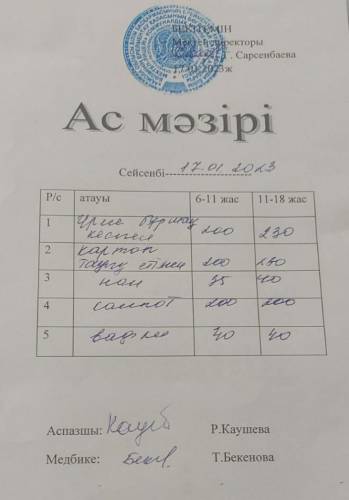 БЕКІТЕМІН
Мектеп директоры
Г. Сарсенбаева
17.01.2023ж
Ас мәзірі
Сейсенбі 17.01 2023
Р/с атауы 6-11 жас 11-18 жас
1 бұршақ
кеспе 200 230
2 картоп
тауық етімен 200 230
3 нан 35 40
4 компот 200 200
5 вафли 40 40
Аспазшы: Р.Каушева
Медбике: Т.Бекенова